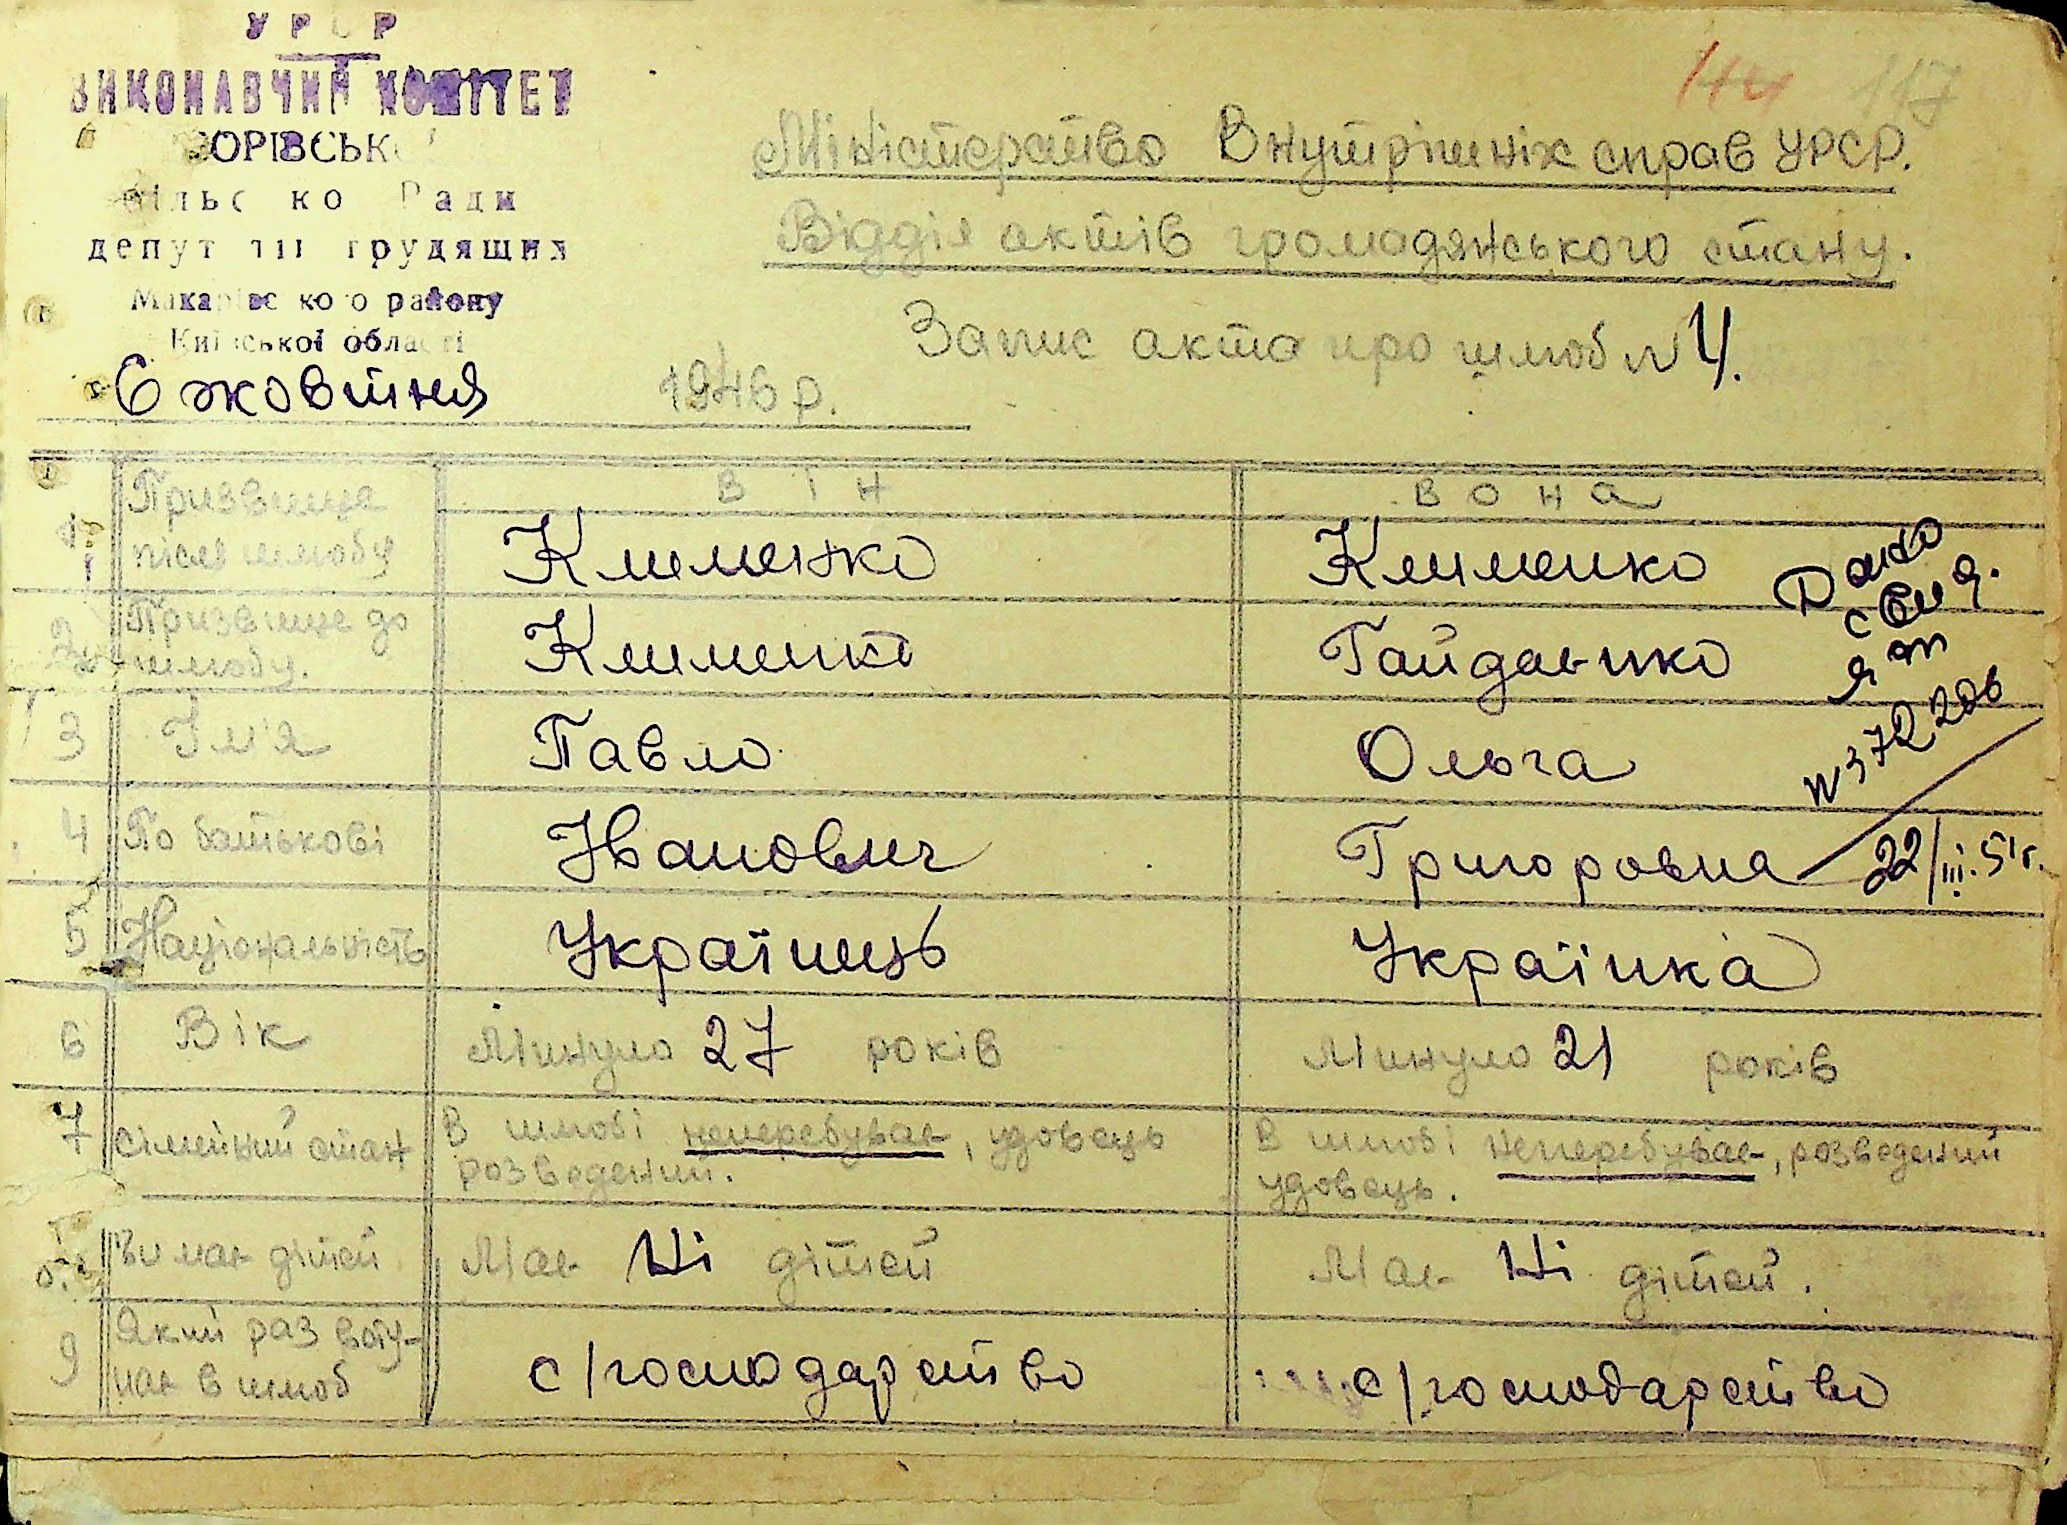 УРСР
ВИКОНАВЧИЙ КОМІТЕТ
ОРІВСЬК
сільс ко Ради
депут тіі трудящих
Макарівс кого району
Київської області
144 117
Міністерство Внутрішніх справ УРСР.
Відділ актів громадянського стану.
Запис акта про шлюб N 4.
6 жовтня 1946 р.
він вона
1 Призвище після шлюбу Клименко Клименко
2 Призвище до шлюбу. Клименко Гайдаенко
3 Ім'я Павло Ольга
4 По батькові Іванович Григоровна
5 Національність Українець Українка
6 Вік Минуло 27 років Минуло 21 років
7 сімейний стан В шлюбі неперебуває, удовець розведений. В шлюбі неперебуває, розведений удовець.
Чи має дітей Має Ні дітей Має Ні дітей.
9 Який раз вступає в шлюб с/господарство с/господарство
N 372206
22/III.51г.